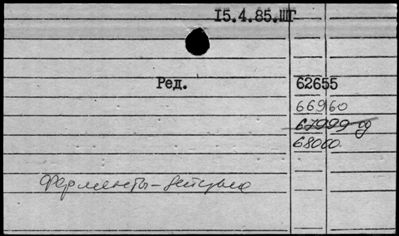 15.4.85.ШГ
Ред. 62655
66960
67999
68000.
Ферменты-